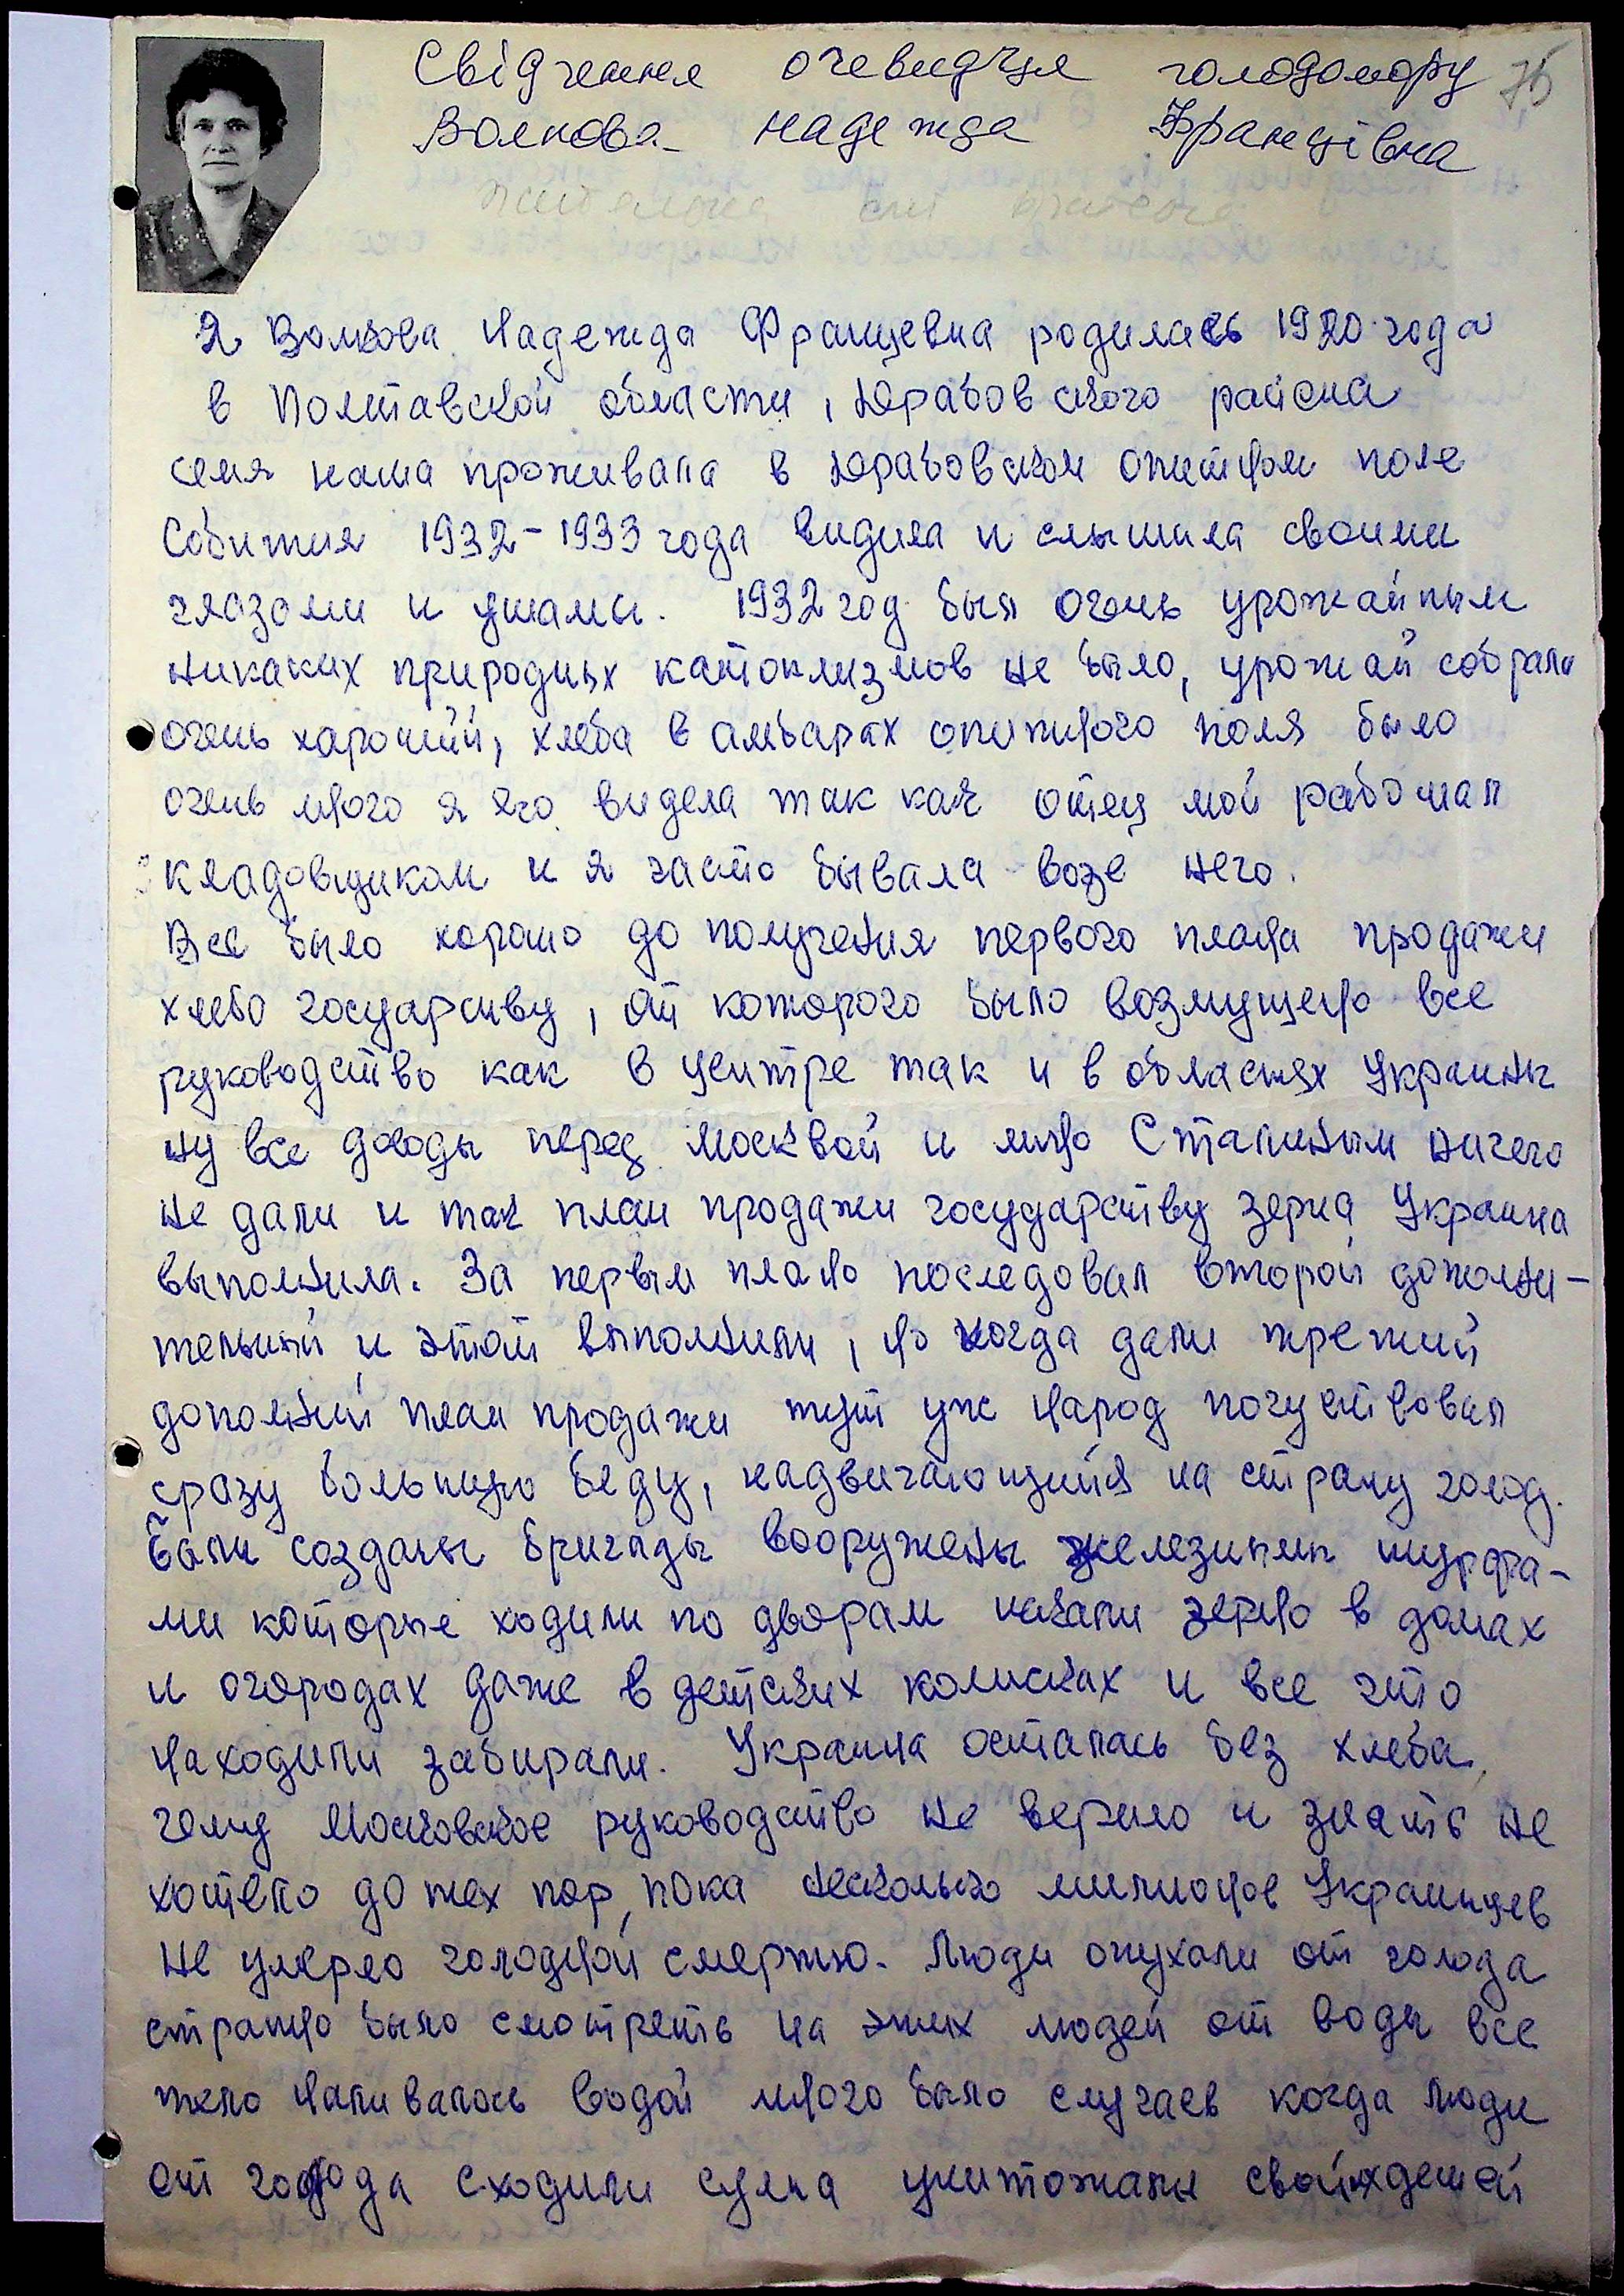 Свідчення очевидця голодомору 75
Волкова Надежда Францівна
Я Волкова Надежда Францевна родилась 1920 года
в Полтавской области, Драбовского района
семя наша проживала в Драбовском опитном поле
Собития 1932-1933 года видила и слышила своими
глазами и ушами. 1932 год был очень урожайным
никаких природных катоклизмов не было, урожай собрали
очень хароший, хлеба в амбарах опитного поля было
очень много я его видела так как отец мой работал
кладовщиком и я часто бывала возе него.
Все было хорошо до получения первого плана продажи
хлеба госуарству, от которого было возмущено все
руководство как в центре так и в областях Украины
ну все доводы перед Москвой и лично Сталиным ничего
не дали и так план продажи государству зерна Украина
выполнила. За первым плано последовал второй дополни-
тельный и этот выполнили, но когда дали третий
дополний план продажи тут уж народ почуствовал
сразу большую беду, надвигающийся на страну голод.
Были созданы бригады вооружены железними шурфа-
ми которые ходили по дворам искали зерно в домах
и огородах даже в детских колисках и все что
находили забирали. Украина осталась без хлеба,
чему Московское руководство не верило и знать не
хотело до тех пор, пока несколько милионов Украинцев
не умерло голодной смертю. Люди опухали от голода
страшно было смотреть на этих людей от воды все
тело наливалось водой много было случаев когда люди
от голода сходили сума унитожали свойих детей